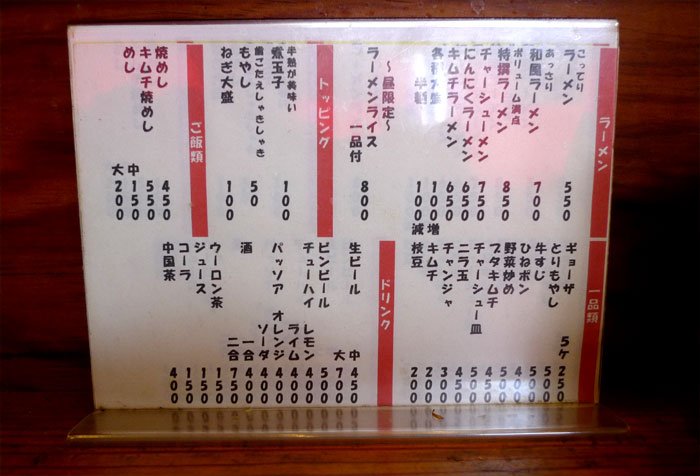 ラーメン
こってり
ラーメン 550
あっさり
和風ラーメン 700
ボリューム満点
特撰ラーメン 850
チャーシューメン 750
にんにくラーメン 650
キムチラーメン 650
各種大盛 100増
半麺 100減
〜昼限定〜
ラーメンライス 一品付 800
トッピング
半熟が美味い
煮玉子 100
歯ごたえしゃきしゃき
もやし 50
ねぎ大盛 100
ご飯類
焼めし 450
キムチ焼めし 550
めし 中 150
大 200
一品類
ギョーザ 5ケ 250
とりもやし 500
牛すじ 500
ひねポン 400
野菜炒め 500
ブタキムチ 500
チャーシュー皿
ニラ玉 450
チャンジャ 300
キムチ 200
枝豆 200
ドリンク
生ビール 中 450
大 700
ビンビール 500
チューハイ レモン 400
ライム 400
パッソア オレンジ 400
ソーダ 400
酒 一合 400
二合 750
ウーロン茶 150
ジュース 150
コーラ 150
中国茶 400